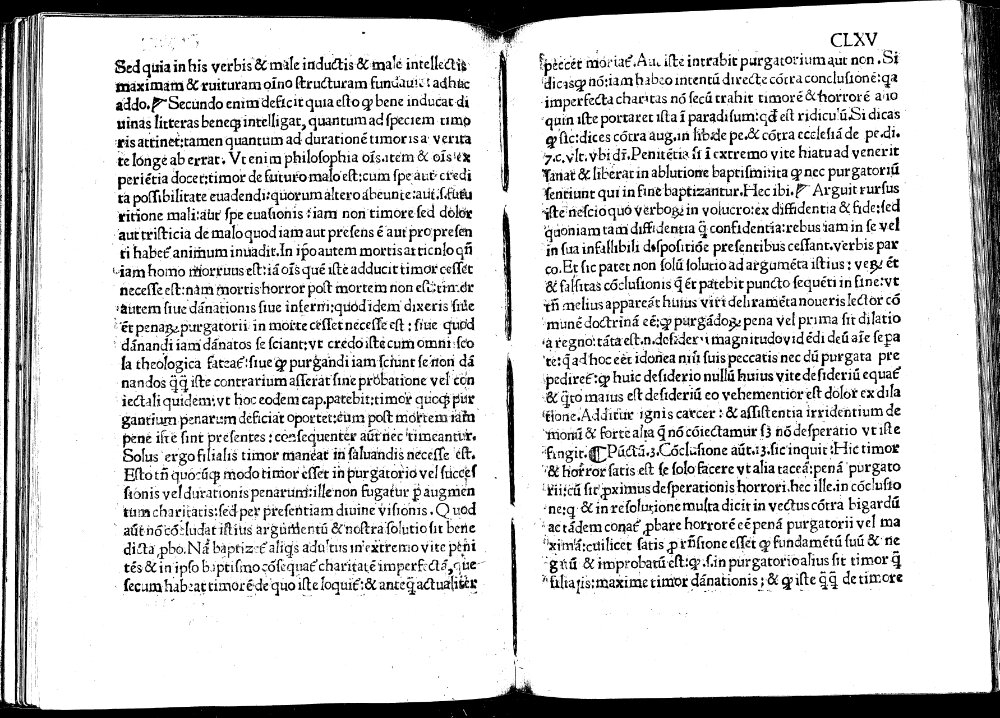 Sed quia in his verbis & male inductis & male intellectis
maximam & ruituram oīno structuram fundauit: adhuc
addo. Secundo enim deficit quia esto ꝙ bene inducat di
uinas litteras beneqȝ intelligat, quantum ad speciem timo
ris attinet: tamen quantum ad durationē timoris a verita
te longe aberrat. Vt enim philosophia
periētia docet: timor de futuro malo est: cum spe aut credi
ta possibilitate euadendi: quorum altero abeunte: aut .s. futu
ritione mali: aut spe euasionis: iam non timore sed dolor
aut tristicia de malo quod iam aut presens ē aut pro presen
ti habet᷒ animum inuadit. In ipo autem mortis articulo qn̄
iam homo mortuus est: iā oīs quē iste adducit timor cesset
necesse est: nam mortis horror post mortem non est: timor
autem siue dānationis siue inferni: quod idem dixeris siue
ēt penaꝝ purgatorii in morte cesset necesse est: siue quod
dānandi iam dānatos se sciant: vt credo iste cum omni sco
la theologica fateat᷒: siue ꝙ purgandi iam sciunt se non dā
nandos q̄q̄ iste contrarium asserat sine probatione vel con
iectali quidem: vt hoc eodem cap. patebit: timor quoqȝ pur
gantium penarum deficiat oportet: cum post mortem iam
pene iste sint presentes: consequenter aūt nec timeantur.
Solus ergo filialis timor maneat in saluandis necesse est.
Esto tn̄ quocūqȝ modo timor esset in purgatorio vel succes
sionis vel durationis penarum: ille non fugatur p augmen
tum charitatis: sed per presentiam diuine visionis. Quod
aūt nō cōcludat istius argumentū & nostra solutio sit bene
dicta, pbo. Nā baptizet᷒ aliqs adultus in extremo vite peni
tēs & in ipso baptismo cōsequat᷒ charitatē imperfectā, que
secum habeat timorē de quo iste loquit᷒: & anteq̄ actualiter
CLXV
peccet moriat᷒. Aut iste intrabit purgatorium aut non. Si
dicas ꝙ nō: iam habeo intentū directe cōtra conclusionē: qa
imperfecta charitas nō secū trahit timorē & horrorē alio
quin iste portaret ista ī paradisum: qd̄ est ridiculū. Si dicas
ꝙ sic: dices cōtra aug. in lib. de pe. & cōtra ecclesiā de pe. di.
7. c. vlt. vbi dr̄. Penitētia si ī extremo vite hiatu ad venerit
sanat & liberat in ablutione baptismi: ita ꝙ nec purgatoriū
sentiunt qui in fine baptizantur. Hec ibi. Arguit rursus
iste nescio quo verboꝝ in volucro: ex diffidentia & fide: sed
quoniam tam diffidentia q̄ confidentia: rebus iam in se vel
in sua infallibili dispositiōe presentibus cessant. verbis par
co. Et sic patet non solū solutio ad argumēta istius: veꝝ ēt
& falsitas cōclusionis q̄ ēt patebit puncto sequēti in fine: vt
tn̄ melius appareāt huius viri deliramēta noueris lector cō
munē doctrinā eē: ꝙ purgādoꝝ pena vel prima sit dilatio
a regno: tāta est .n. desiderii magnitudo vidēdi deū a se sepa
te: q̄ ad hoc eēt idonea nisi suis peccatis nec dū purgata pre
pediret᷒: ꝙ huic desiderio nullū huius vite desideriū equat᷒
& q̄to maius est desideriū eo vehementior est dolor ex dila
tione. Additur ignis carcer: & assistentia irridentium de
monū & forte alia q̄ nō cōiectamur sȝ nō desperatio vt iste
fingit. Pūctā. 3. Cōclusione aūt. 13. sic inquit: Hic timor
& horror satis est se solo facere vt alia taceā: penā purgato
rii: cū sit pximus desperationis horrori. hec ille. in cōclusio
ne: q̄ & in resolutione multa dicit in vectus cōtra bigardū
ac tādem conat᷒ pbare horrorē eē penā purgatorii vel ma
ximā: cui licet satis p rn̄sione esset ꝙ fundamētū suū & ne
gatū & improbatū est: ꝙ .s. in purgatorio alius sit timor q̄
filialis: maxime timor dānationis; & ꝙ iste q̄q̄ de timore